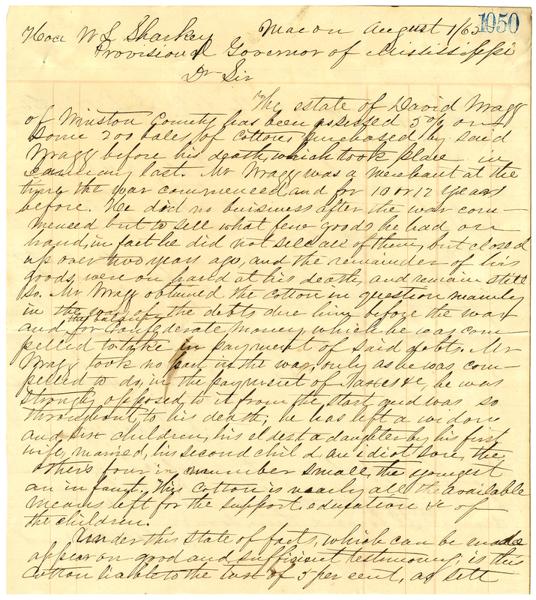 1050
Macon August 1/65
Hon W L Sharkey
Provisional Governor of Mississippi
Dr Sir
The estate of David Wragg
of Winston County has been assessed 5 % on
some 200 bales of cotton, purchased by said
Wragg before his death, which took place in
January last. Mr Wragg was a merchant at the
time the war commenced and for 10 or 12 years
before. He did no business after the war com-
menced but to sell what few goods he had on
hand, in fact he did not sell all of them, but closed
up over two years ago, and the remainder of his
goods were on hand at his death, and remain still
so. Mr Wragg obtained the cotton in question mainly
in the payment of the debts due him before the war
and for Confederate money, which he was com-
pelled to take in payment of said debts. Mr
Wragg took no part in the war, only as he was com-
pelled to do, in the payment of Taxes &c, he was
strongly opposed to it from the start, and was so
throughout to his death; he has left a widow
and six children, his eldest a daughter by his first
wife, married, his second child an idiot son, the
others four in number small, the youngest
an infant. This cotton is nearly all the available
means left for the support, education &c of
the children.
Under this state of facts, which can be made
appear on good and sufficient testimony, is this
cotton liable to the tax of 5 per cent, as sett